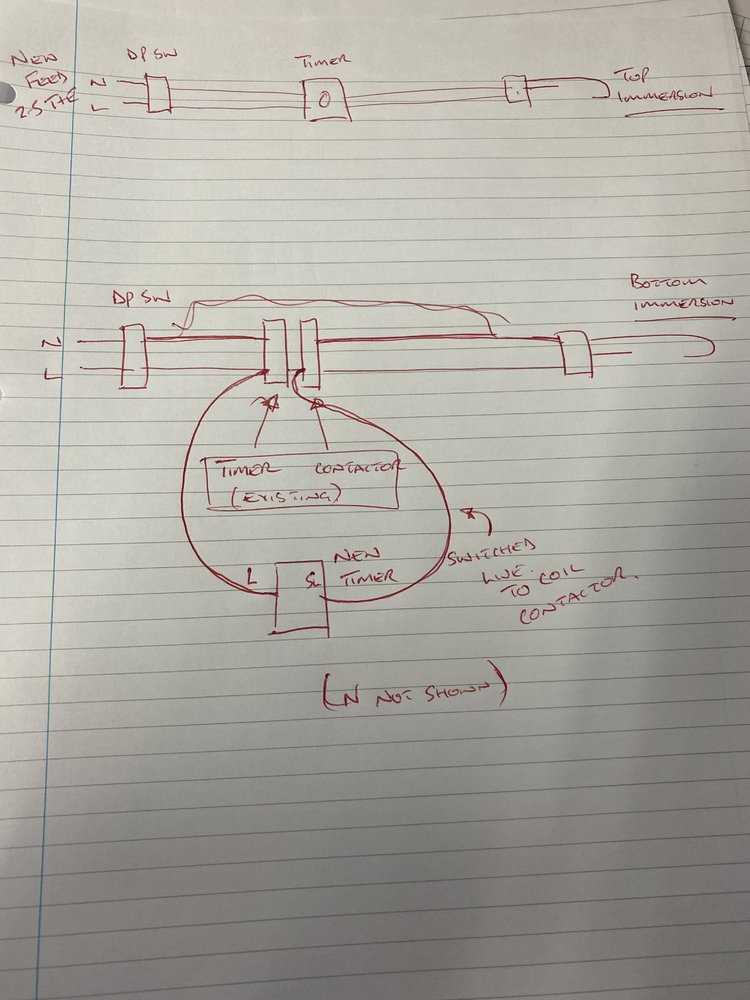 NEW
FEED
2.5 T&E
DP SW
TIMER
N
L
TOP
IMMERSION
DP SW
BOTTOM
IMMERSION
N
L
TIMER CONTACTOR
(EXISTING)
NEW
TIMER
L
SL
SWITCHED
LIVE.
TO COIL
CONTACTOR.
(N NOT SHOWN)